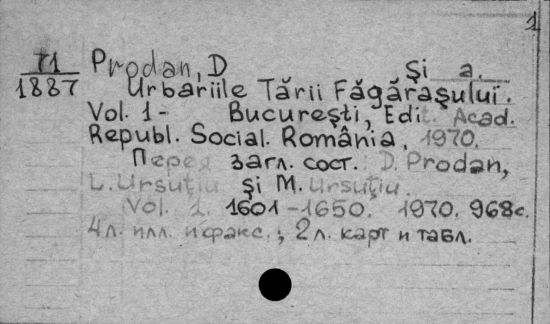 1
71 Prodan, D și a.
1887 Urbariile Tării Făgărașului.
Vol. 1- București, Edit. Acad.
Republ. Social. România, 1970.
Перед загл. сост. D. Prodan,
L. Ursuțiu și M. Ursuțiu.
Vol. 1. 1601-1650. 1970. 968с.
4л. илл. и факс.; 2л. карт и табл.